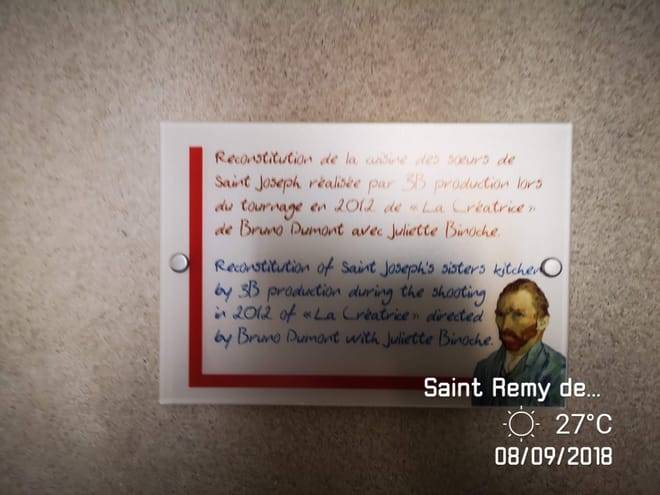 Reconstitution de la cuisine des sœurs de
Saint Joseph réalisée par 3B production lors
du tournage en 2012 de «La Créatrice»
de Bruno Dumont avec Juliette Binoche.
Reconstitution of Saint Joseph's sisters kitchen
by 3B production during the shooting
in 2012 of «La Créatrice» directed
by Bruno Dumont with Juliette Binoche.
Saint Remy de...
27°C
08/09/2018